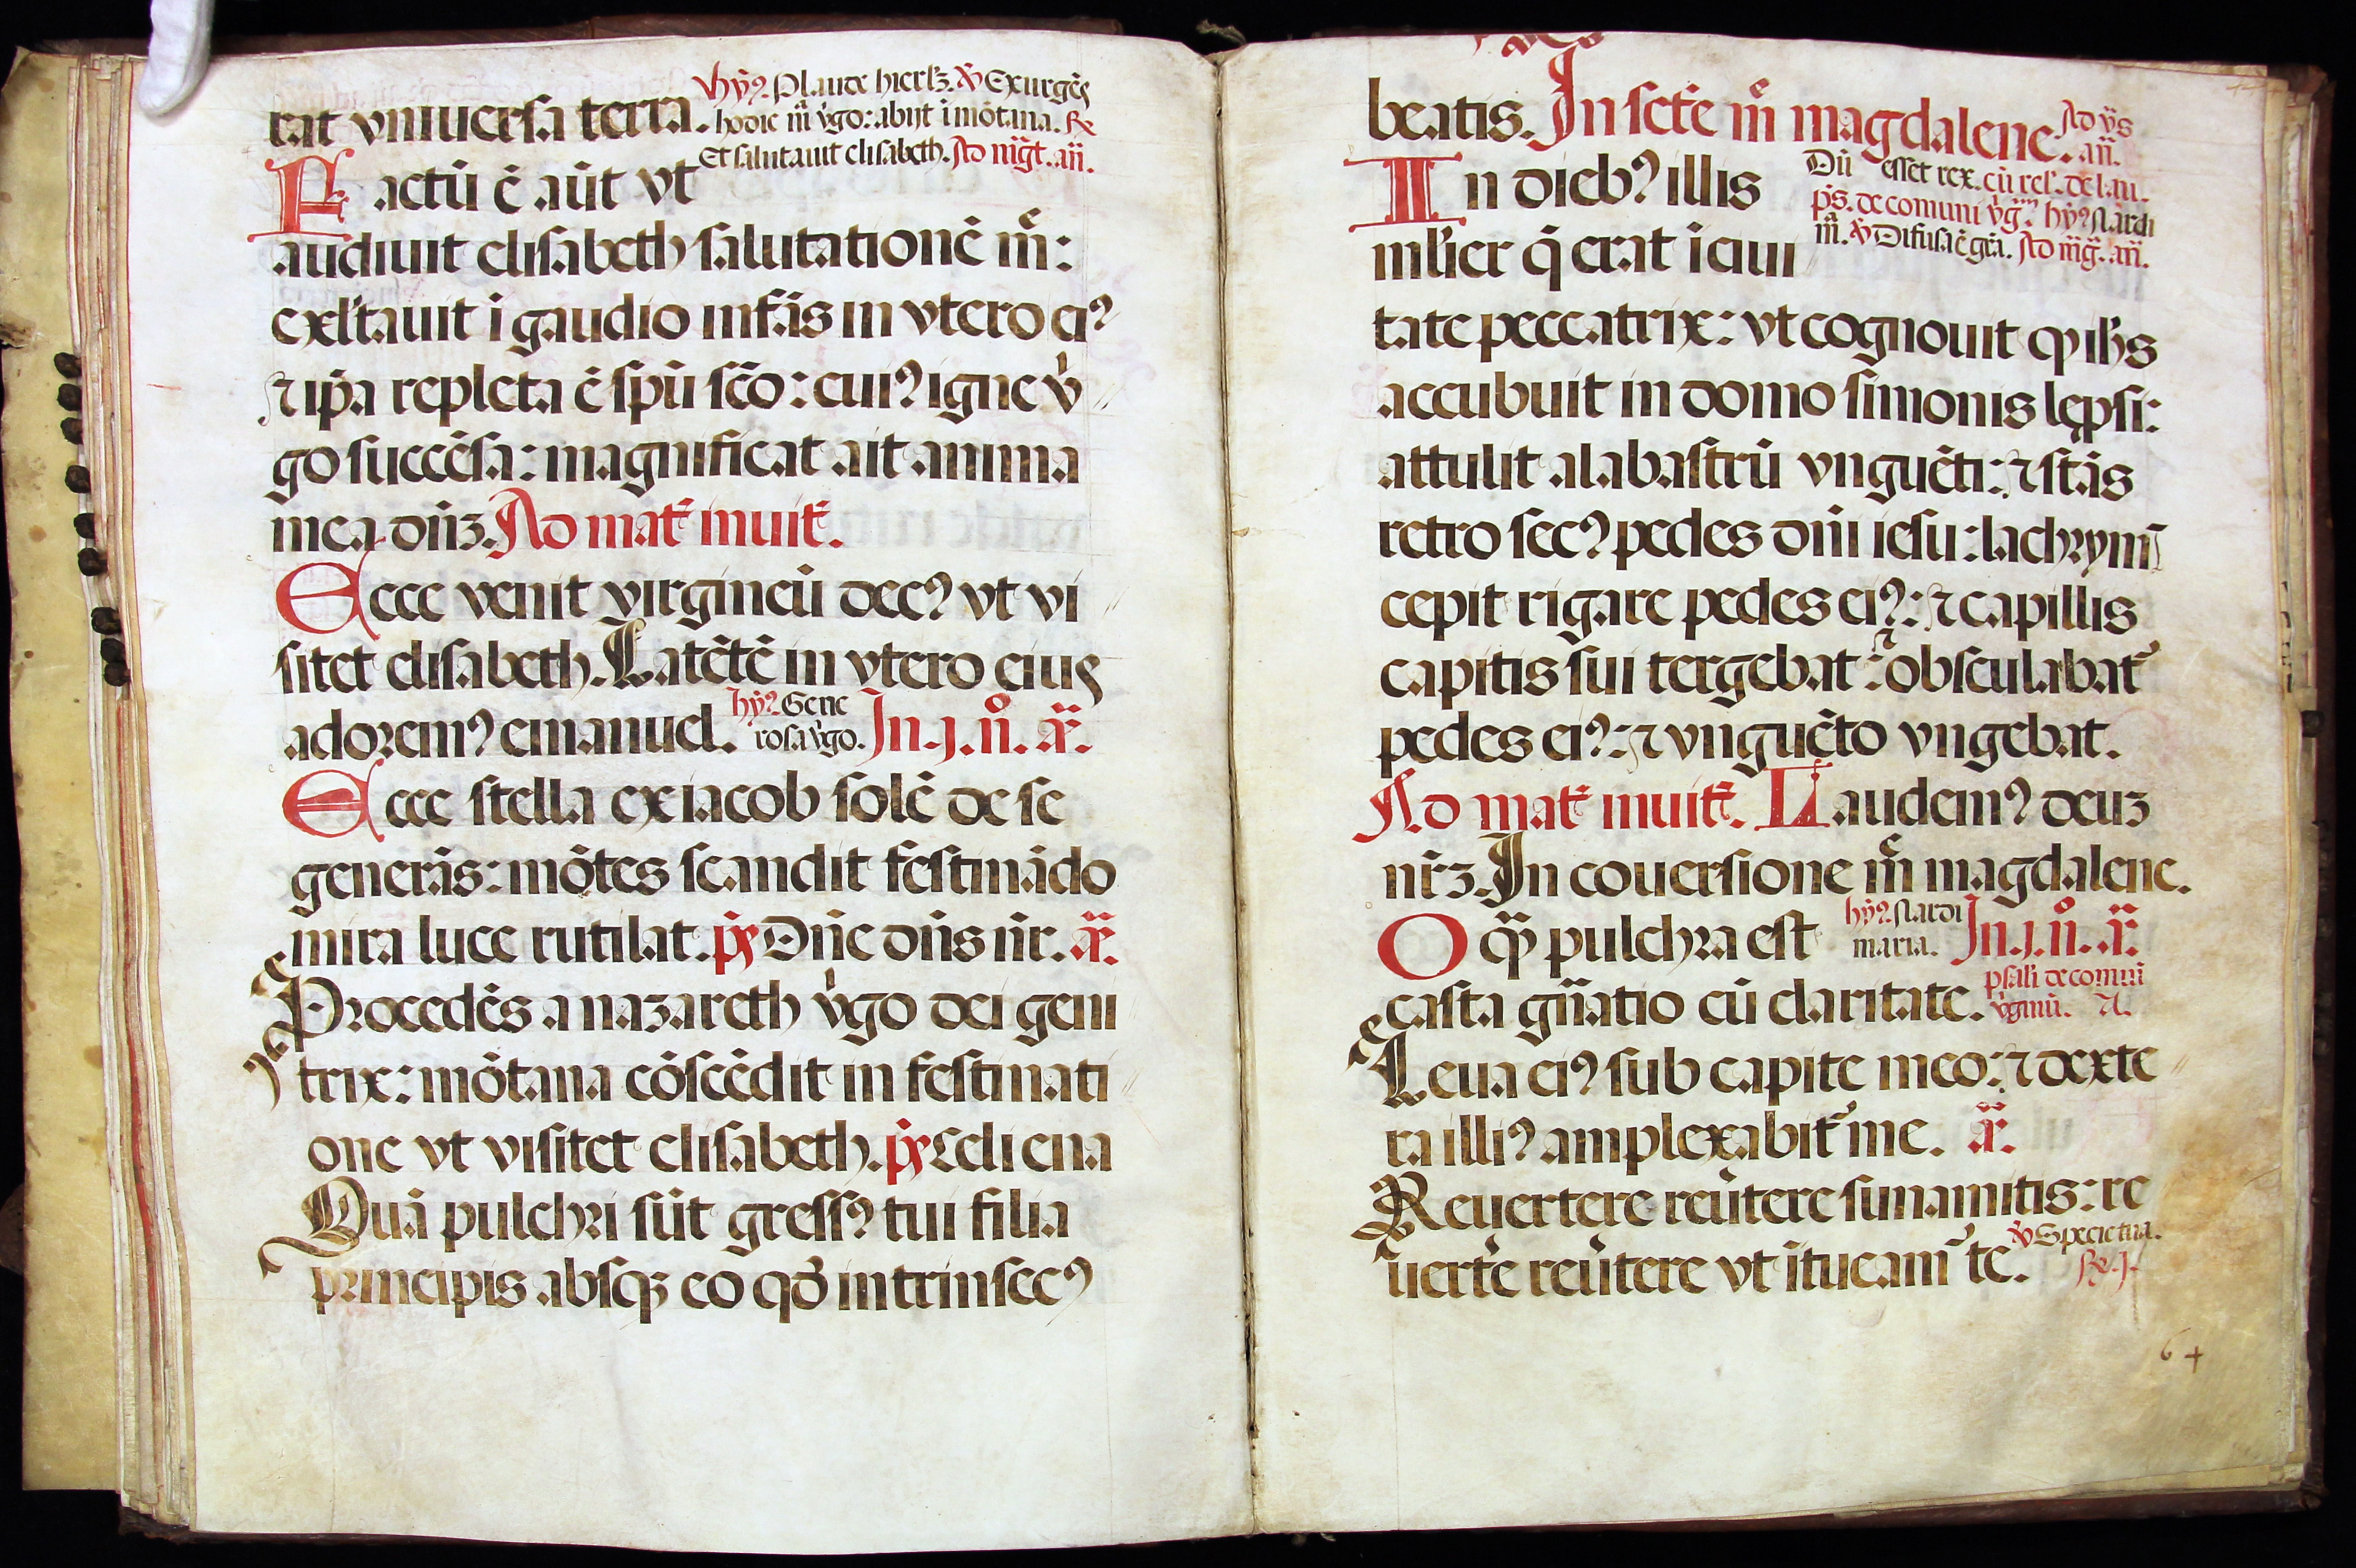 rat vniuersa terra. hỹꝰ. Plaude hierl'ꝫ. ℣ Exurgēs
hodie m̄ v̓go: abijt i mōtana. ℞
Et salutauit elisabeth. Ad m̄gt. añ.
Factū ē aūt vt
audiuit elisabeth salutationē m̄:
exl'tauit ī gaudio infās in vtero eiꝰ
⁊ ip̄a repleta ē spū scō: cuiꝰ igne v̓
go succēsa: magnificat ait anima
mea dñꝫ. Ad mat̄ inuit̄.
Ecce venit virgineū decꝰ vt vi
sitet elisabeth. Latētē in vtero eius
adoremꝰ emanuel. hỹꝰ. Gene
rosa v̓go. In .j. n̊. añ.
Ecce stella ex iacob solē de se
generās: mōtes scandit festināndo
mira luce rutilat. p̄s Dñe dñs nr̄. añ.
Procedēs a nazareth v̓go dei geni
trix: mōtana cōscēdit in festinati
one vt visitet elisabeth. p̄s Celi ena
Quā pulchri sūt gressꝰ tui filia
principis absqꝫ eo qď intrinsecꝰ
beatis. In scte m̄ magdalene. Ad v̄s
añ.
Dū esset rex. cū rel'. de lau.
p̄s. de comuni v̓gm̄ hỹꝰ Nardi
m̄. ℣ Difusa ē gr̄a. Ad m̄g. añ.
In diebꝰ illis
ml'ier q̄ erat ī ciui
tate peccatrix: vt cognouit qꝫ ihs
accubuit in domo simonis lep̱si:
attulit alabastrū vnguēti: ⁊ stās
retro secꝰ pedes dñi iesu: lachrym̄
cepit rigare pedes eiꝰ: ⁊ capillis
capitis sui tergebat: ⁊ obsculabat̓
pedes eiꝰ: ⁊ vnguēto vngebat.
Ad mat̄ inuit̄. Laudemꝰ deuꝫ
nr̄ꝫ. In couersione m̄ magdalene.
O qꝫ pulchra est hỹꝰ. Nardi
maria. In .j. n̊. añ.
casta gñatio cū claritate. psal'i de comuni
v̓ginū. A.
Leua eiꝰ sub capite meo: ⁊ dexte
ra illiꝰ amplexabit̓ me. añ.
Reuertere reūtere sunamitis: re
uert̓e reūtere vt ītueam̓ te. ℣ Specie tua.
℞. j.
64